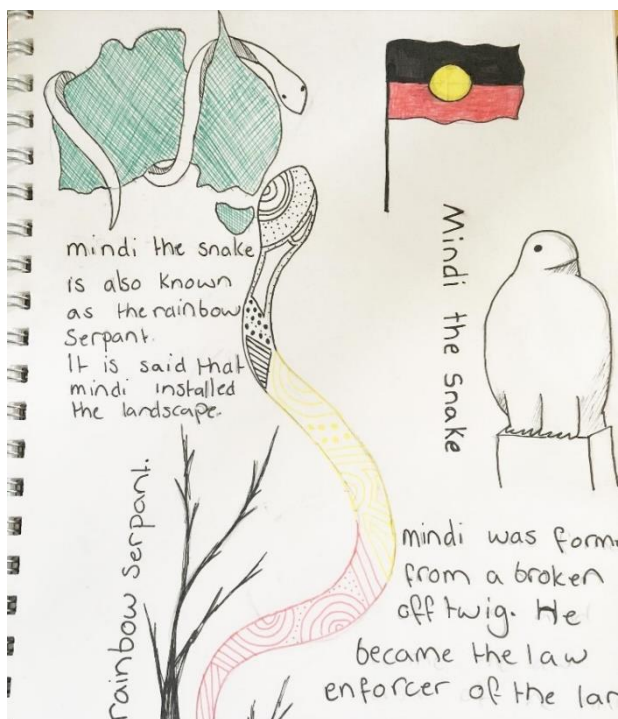 mindi the snake
is also known
as the rainbow
Serpant.
It is said that
mindi installed
the landscape.
Mindi the Snake
rainbow serpant.
mindi was
from a broken
off twig. He
became the law
enforcer of the